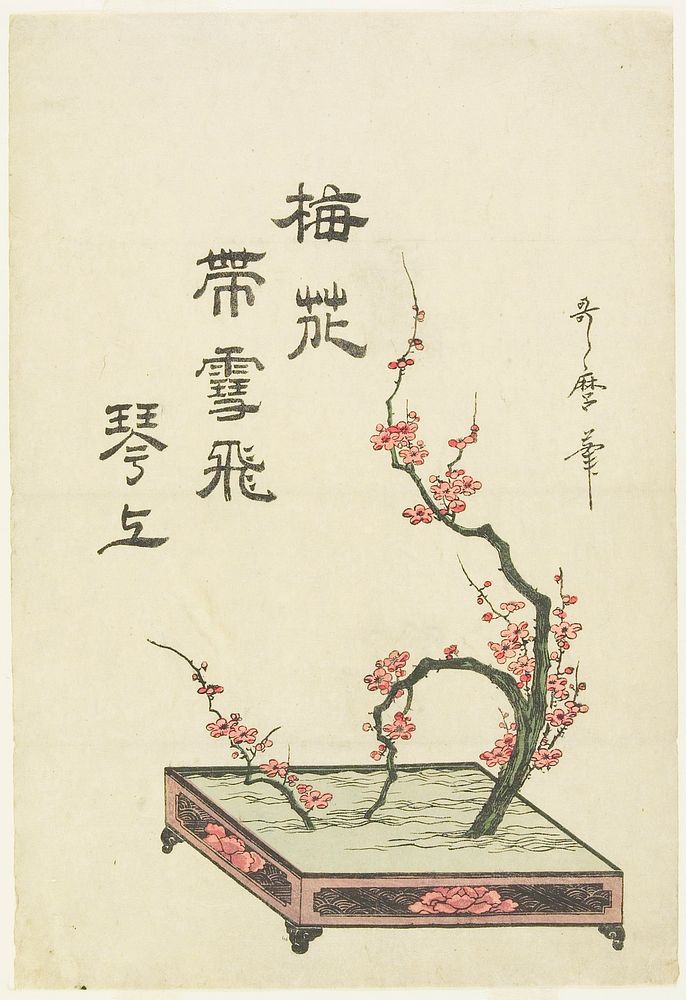 哥麿筆
梅花
帯雪飛
琴上